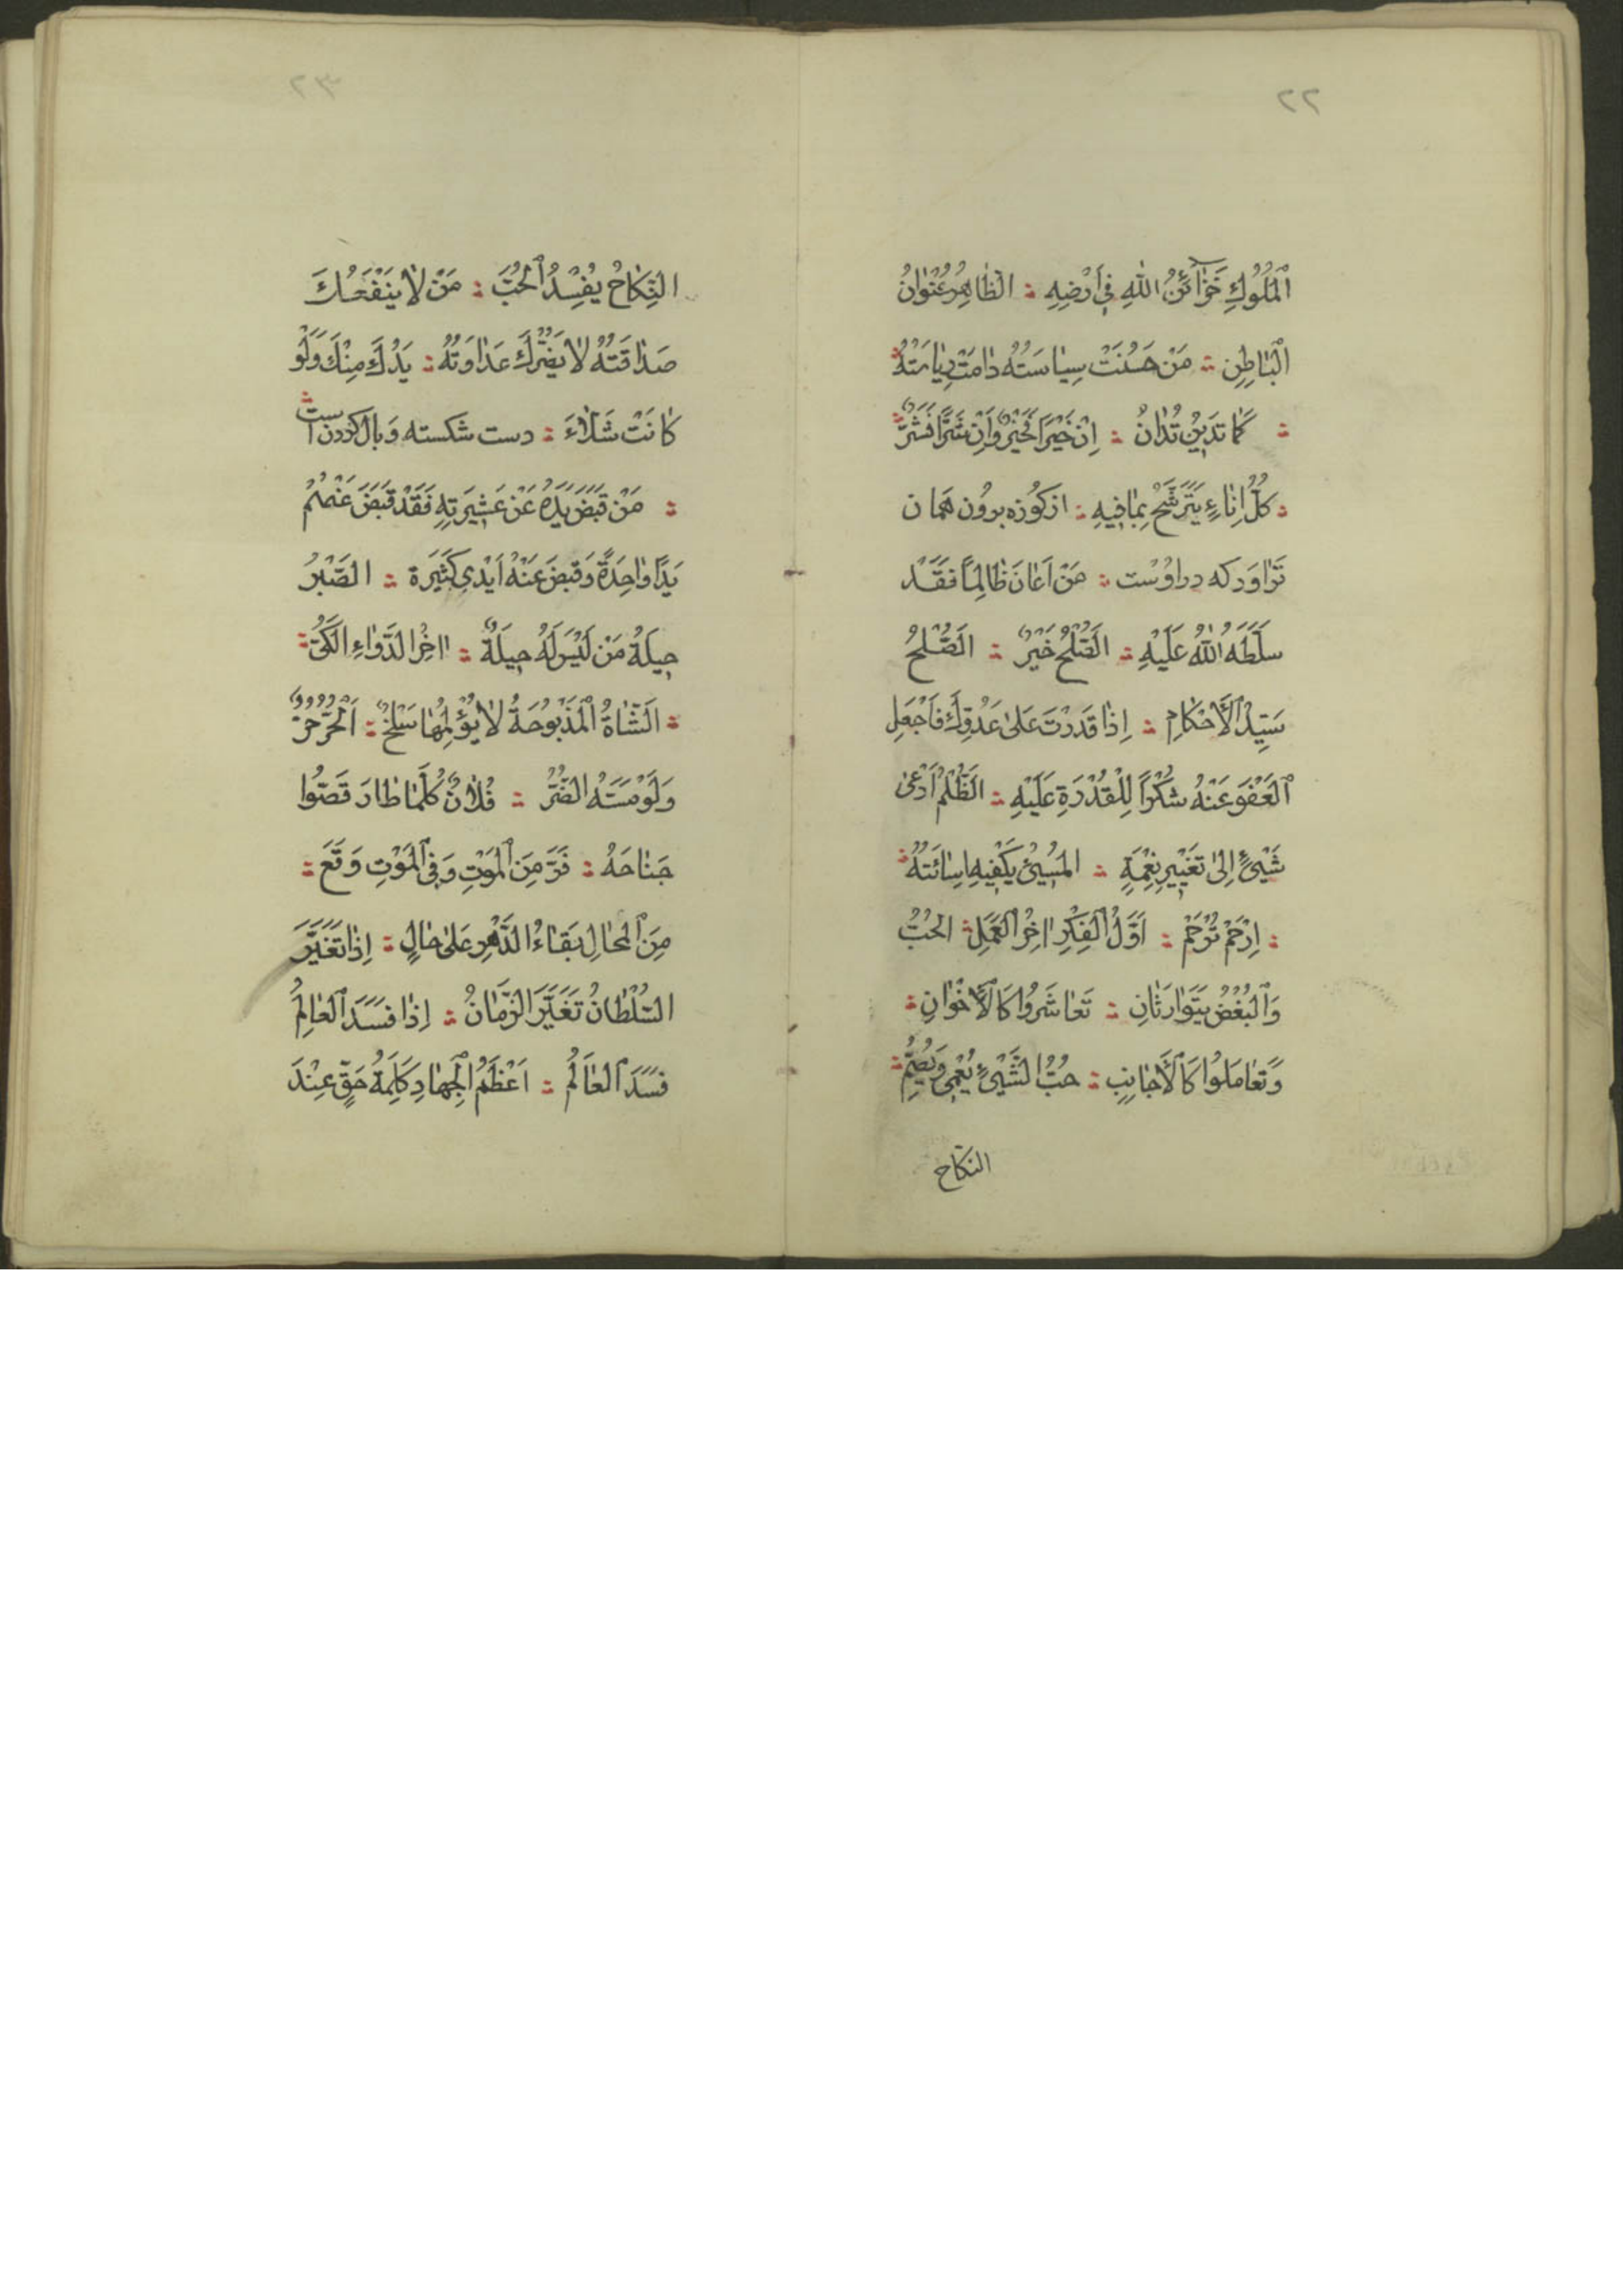 ٢٢
اَلْمُلُوكِ خَزَائِنُ اللّٰهِ فِي اَرْضِهِ ؛ الظَّاهِرُ عُنْوَانُ
الْبَاطِنِ ؛ مَنْ حَسُنَتْ سِيَاسَتُهُ دَامَتْ رِيَاسَتُهُ ؛
؛ كَمَا تَدِيْنُ تُدَانُ ؛ اِنْ خَيْرًا فَخَيْرٌ وَاِنْ شَرًّا فَشَرٌّ ؛
؛ كُلُّ اِنَاءٍ يَتَرَشَّحُ بِمَا فِيهِ ؛ از كوزه برون همان
تراود كه در اوست ؛ مَنْ اَعَانَ ظَالِمًا فَقَدْ
سَلَّطَهُ اللّٰهُ عَلَيْهِ ؛ اَلصُّلْحُ خَيْرٌ ؛ اَلصُّلْحُ
سَيِّدُ الْاَحْكَامِ ؛ اِذَا قَدَرْتَ عَلٰى عَدُوِّكَ فَاجْعَلِ
الْعَفْوَ عَنْهُ شُكْرًا لِلْقُدْرَةِ عَلَيْهِ ؛ اَلظُّلْمُ اَدْعٰى
شَيْئٍ اِلٰى تَغْيِيْرِ نِعْمَةٍ ؛ المُسِيْئُ يَكْفِيهِ اِسَائَتُهُ ؛
؛ اِرْحَمْ تُرْحَمْ ؛ اَوَّلُ الْفِكْرِ اٰخِرُ الْعَمَلِ ؛ الْحُبُّ
وَالْبُغْضُ يَتَوَارَثَانِ ؛ تَعَاشَرُوا كَالْاَخْوَانِ ؛
وَتَعَامَلُوا كَالْاَجَانِبِ ؛ حُبُّ الشَّيْئِ يُعْمِي وَيُصِمُّ ؛
النكاح
٢٣
النِّكَاحُ يُفْسِدُ الْحُبَّ ؛ مَنْ لَا يَنْفَعُكَ
صَدَاقَتُهُ لَا يَضُرُّكَ عَدَاوَتُهُ ؛ يَدُكَ مِنْكَ وَلَوْ
كَانَتْ شَلَّاءَ ؛ دست شكسته وبال گردن است ؛
؛ مَنْ قَبَضَ يَدَهُ عَنْ عَشِيرَتِهِ فَقَدْ قَبَضَ عَنْهُمْ
يَدًا وَاحِدَةً وَقَبَضَ عَنْهُ اَيْدِي كَثِيرَة ؛ الصَّبْرُ
حِيلَةُ مَنْ لَيْسَ لَهُ حِيلَةٌ ؛ اٰخِرُ الدَّوَاءِ الْكَيُّ ؛
؛ اَلشَّاةُ الْمَذْبُوحَةُ لَا يُؤْلِمُهَا سَلْخٌ ؛ اَلْحُرُّ حُرٌّ
وَلَوْ مَسَّهُ الضُّرُّ ؛ فُلَانٌ كُلَّمَا طَارَ قَصُّوا
جَنَاحَهُ ؛ فَرَّ مِنَ الْمَوْتِ وَفِي الْمَوْتِ وَقَعَ ؛
مِنَ الْمُحَالِ بَقَاءُ الدَّهْرِ عَلٰى حَالٍ ؛ اِذَا تَغَيَّرَ
السُّلْطَانُ تَغَيَّرَ الزَّمَانُ ؛ اِذَا فَسَدَ الْعَالِمُ
فَسَدَ الْعَالَمُ ؛ اَعْظَمُ الْجِهَادِ كَلِمَةُ حَقٍّ عِنْدَ